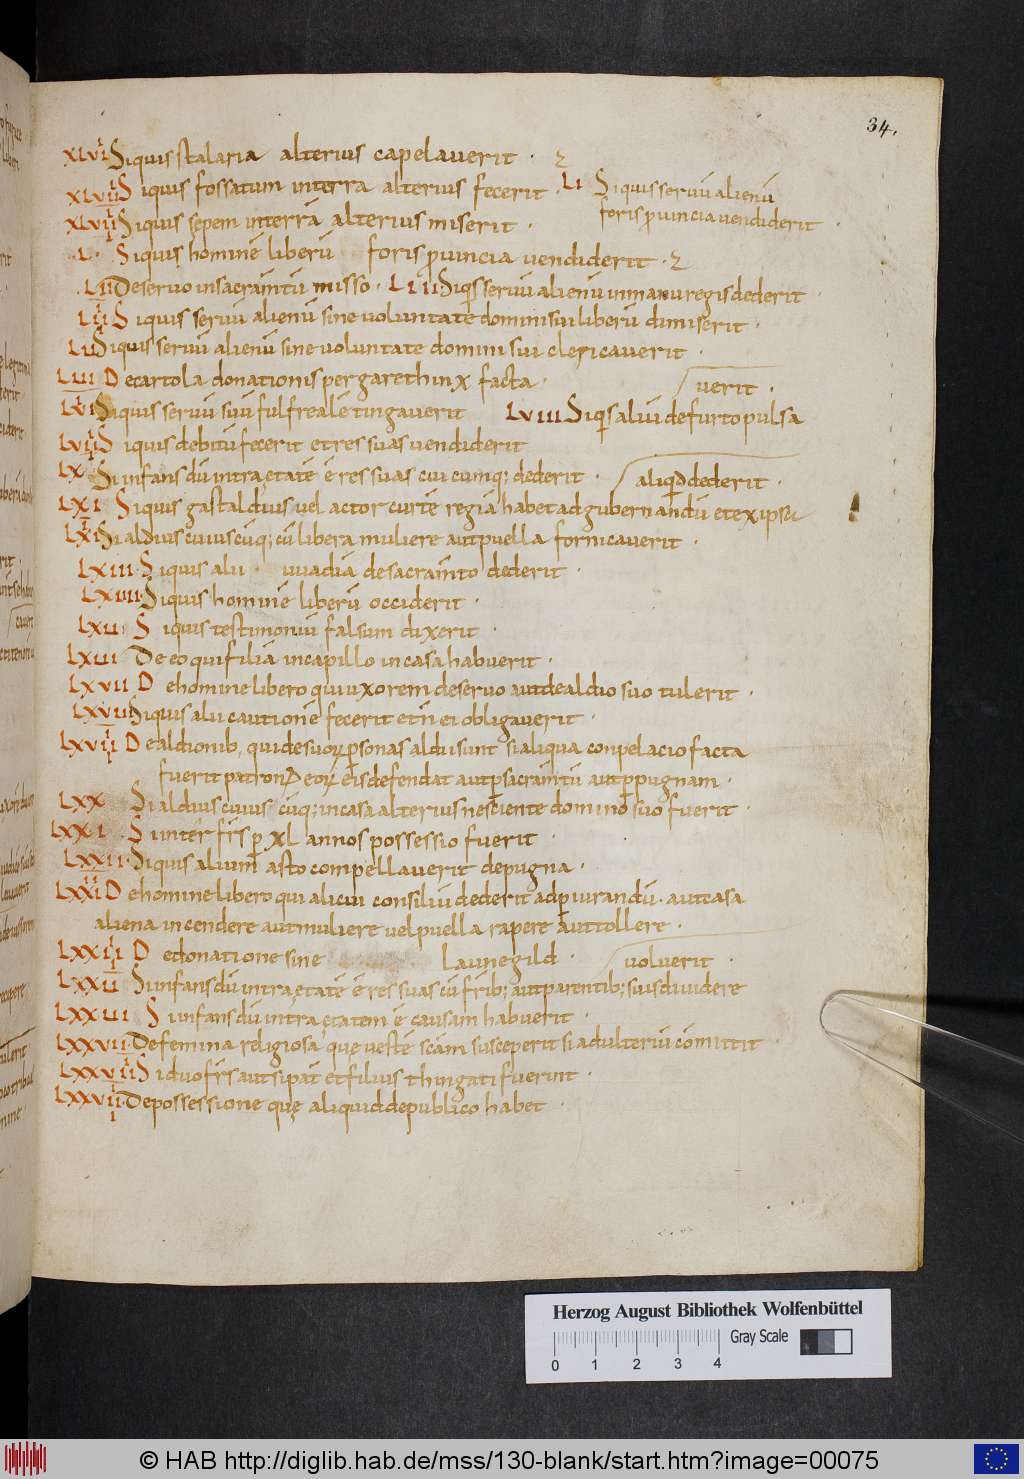 34.
XLVI Siquis stalaria alterius capelaverit .
XLVII Siquis fossatum interra alterius fecerit .
LI Siquis servū alienū
foris pvincia vendiderit .
XLVIII Siquis sepem interrā alterius miserit .
L . Siquis hominē liberū foris pvincia vendiderit .
LII De servo insacramtū misso . LIII Siqs servū alienū inmanu regis dederit
LIII Siquis servū alienū sine voluntate domini sui liberū dimiserit .
LV Siquis servū alienū sine voluntate domini sui clericaverit .
LVII De cartola donationis per garethinx facta .
verit .
LVI Siquis servū suū fulfrealē tingaverit LVIII Siqs aliū defurto pulsa
LVIIII Siquis debitū fecerit et res suas vendiderit
LX Si infans dū intra ętatē ē res suas cui cumq; dederit .
aliqd dederit .
LXI Siquis gastaldius vel actor curtē regiā habet ad gubernandū et ex ipsa
LXII Si aldius cuiuscūq; cū libera muliere aut puella fornicaverit .
LXIII Siquis alii uuadia de sacramto dederit .
LXIIII Siquis hominē liberū occiderit .
LXV Siquis testimoniū falsum dixerit .
LXVI De eo qui filiā incapillo in casa habuerit .
LXVII De homine libero qui uxorem de servo aut de aldio suo tulerit .
LXVIII Siquis alii cautionē fecerit et ei obligaverit .
LXVIIII De aldionib; qui de suor psonas aldii sunt si aliqua conpelacio facta
fuerit patron eor eis defendat aut p sacramtū aut p pugnam .
LXX Si aldius cuius cūq; in casa alterius nesciente domino suo fuerit .
LXXI . Si inter frs p XL annos possessio fuerit .
LXXII . Siquis alium asto compellaverit de pugna .
LXXIII De homine libero qui alicui consiliū dederit ad piurandū . aut casa
aliena incendere aut muliere vel puella rapere aut tollere .
LXXIIII De donatione sine launegild . volverit .
LXXV Si infans dū intra ętatē ē res suas cū frib; aut parentib; suis dividere
LXXVI Si infans dū intra ętatem ē causam habuerit .
LXXVII De femina religiosa quę vestē scam susceperit si adulteriū comittit .
LXXVIII Si duo frs aut si pat et filius thingati fuerint .
LXXVIIII De possessione quę aliquid de publico habet .
Herzog August Bibliothek Wolfenbüttel
0 1 2 3 4
Gray Scale
© HAB http://diglib.hab.de/mss/130-blank/start.htm?image=00075